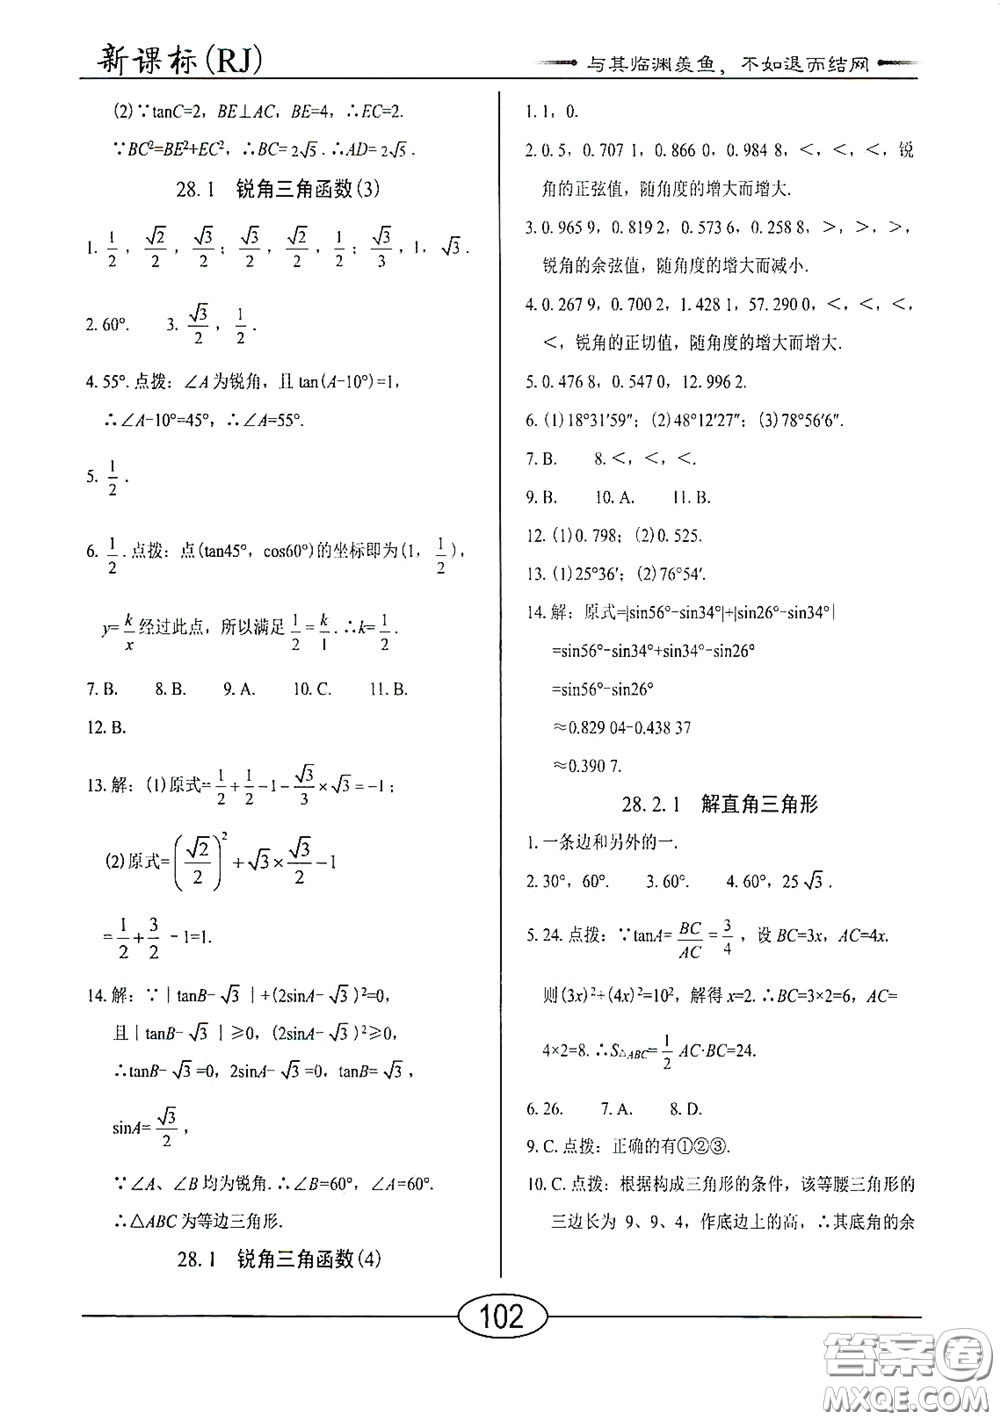 新课标(RJ)
与其临渊羡鱼，不如退而结网
(2)∵tanC=2，BE⊥AC，BE=4，∴EC=2.
∵BC²=BE²+EC²，∴BC=2√5.∴AD=2√5.
28.1 锐角三角函数(3)
1. 1/2，√2/2，√3/2；√3/2，√2/2，1/2；√3/3，1，√3.
2. 60°. 3. √3/2，1/2.
4. 55°.点拨：∠A为锐角，且tan(A-10°)=1，
∴∠A-10°=45°，∴∠A=55°.
5. 1/2.
6. 1/2.点拨：点(tan45°，cos60°)的坐标即为(1，1/2)，
y=k/x经过此点，所以满足1/2=k/1.∴k=1/2.
7. B. 8. B. 9. A. 10. C. 11. B.
12. B.
13. 解：(1)原式=1/2+1/2-1-√3/3×√3=-1；
(2)原式=(√2/2)²+√3×√3/2-1
=1/2+3/2-1=1.
14. 解：∵|tanB-√3|+(2sinA-√3)²=0，
且|tanB-√3|≥0，(2sinA-√3)²≥0，
∴tanB-√3=0，2sinA-√3=0，tanB=√3，
sinA=√3/2，
∵∠A、∠B均为锐角.∴∠B=60°，∠A=60°.
∴△ABC为等边三角形.
28.1 锐角三角函数(4)
1. 1，0.
2. 0.5，0.707 1，0.866 0，0.984 8，＜，＜，＜，锐
角的正弦值，随角度的增大而增大.
3. 0.965 9，0.819 2，0.573 6，0.258 8，＞，＞，＞，
锐角的余弦值，随角度的增大而减小.
4. 0.267 9，0.700 2，1.428 1，57.290 0，＜，＜，＜，
＜，锐角的正切值，随角度的增大而增大.
5. 0.476 8，0.547 0，12.996 2.
6. (1)18°31′59″；(2)48°12′27″；(3)78°56′6″.
7. B. 8. ＜，＜，＜.
9. B. 10. A. 11. B.
12. (1)0.798；(2)0.525.
13. (1)25°36′；(2)76°54′.
14. 解：原式=|sin56°-sin34°|+|sin26°-sin34°|
=sin56°-sin34°+sin34°-sin26°
=sin56°-sin26°
≈0.829 04-0.438 37
≈0.390 7.
28.2.1 解直角三角形
1. 一条边和另外的一.
2. 30°，60°. 3. 60°. 4. 60°，25√3.
5. 24.点拨：∵tanA=BC/AC=3/4，设BC=3x，AC=4x.
则(3x)²+(4x)²=10²，解得x=2.∴BC=3×2=6，AC=
4×2=8.∴S△ABC=1/2AC·BC=24.
6. 26. 7. A. 8. D.
9. C.点拨：正确的有①②③.
10. C.点拨：根据构成三角形的条件，该等腰三角形的
三边长为9、9、4，作底边上的高，∴其底角的余
102
答案圈
MXQE.COM